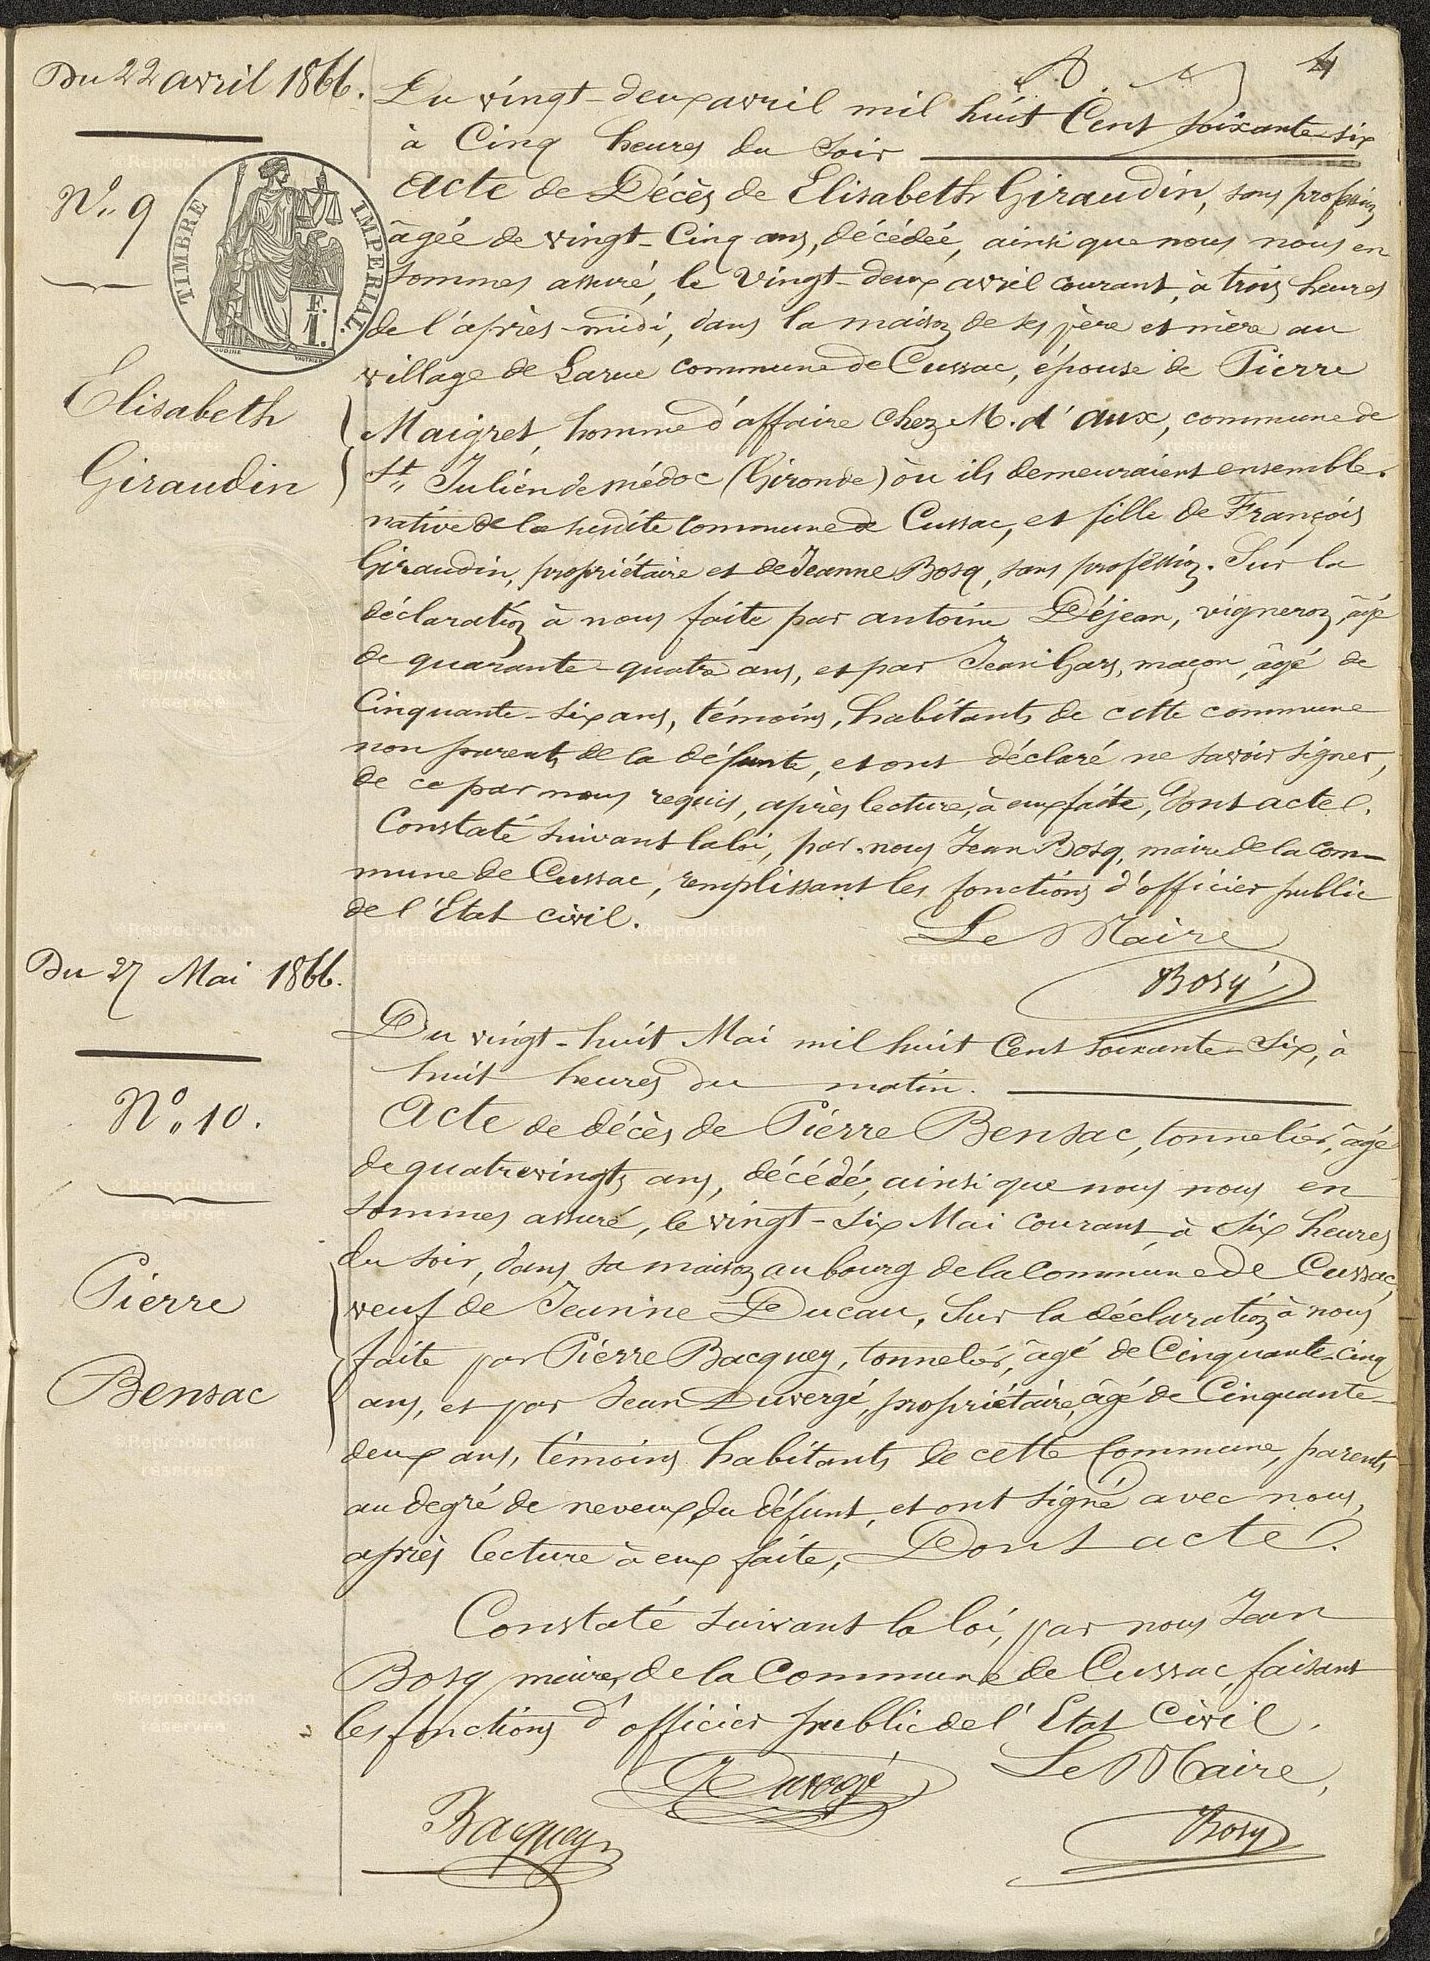 4
Du 22 avril 1866.
N° 9
TIMBRE IMPERIAL
F.
1.
OUDINE
VAUTHIER
Elisabeth
Giraudin
Du vingt-deux avril mil huit Cent soixante-six
à Cinq heures du soir
Acte de Décès de Elisabeth Giraudin, sans profession
âgée de vingt-Cinq ans, décédée, ainsi que nous nous en
sommes assuré, le vingt-deux avril courant, à trois heures
de l'après-midi, dans la maison de ses père et mère au
village de Larue commune de Cussac, épouse de Pierre
Maigret, homme d'affaire chez M. d'aux, commune de
St Julien de médoc (Gironde) où ils demeuraient ensemble.
native de la susdite commune de Cussac, et fille de François
Giraudin, propriétaire et de Jeanne Bosq, sans profession. Sur la
déclaration à nous faite par antoine Déjean, vigneron, âgé
de quarante-quatre ans, et par Jean Gars, maçon, âgé de
Cinquante-six ans, témoins, habitants de cette commune
non parents de la défunte, et ont déclaré ne savoir signer,
de ce par nous requis, après lecture à eux faite, Dont acte.
Constaté suivant la loi, par nous Jean Bosq, maire de la com-
mune de Cussac, remplissant les fonctions d'officier public
de l'Etat civil.
Le Maire
Bosq
Du 27 Mai 1866.
N° 10.
Pierre
Bensac
Du vingt-huit Mai mil huit Cent soixante-Six, à
huit heures du matin.
Acte de décès de Pierre Bensac, tonnelier, âgé
de quatrevingts ans, décédé, ainsi que nous nous en
sommes assuré, le vingt-six Mai courant, à Six heures
du soir, dans sa maison au bourg de la Commune de Cussac,
veuf de Jeanne Ducau, Sur la déclaration à nous
faite par Pierre Bacquey, tonnelier, âgé de Cinquante-cinq
ans, et par Jean Duvergé, propriétaire, âgé de Cinquante-
deux ans, témoins habitants de cette Commune, parents
au degré de neveux du défunt, et ont signé avec nous,
après lecture à eux faite, Dont acte.
Constaté suivant la loi, par nous Jean
Bosq maire, de la Commune de Cussac, faisant
les fonctions d'officier public de l'Etat Civil.
Le Maire,
Duvergé
Bacquey
Bosq